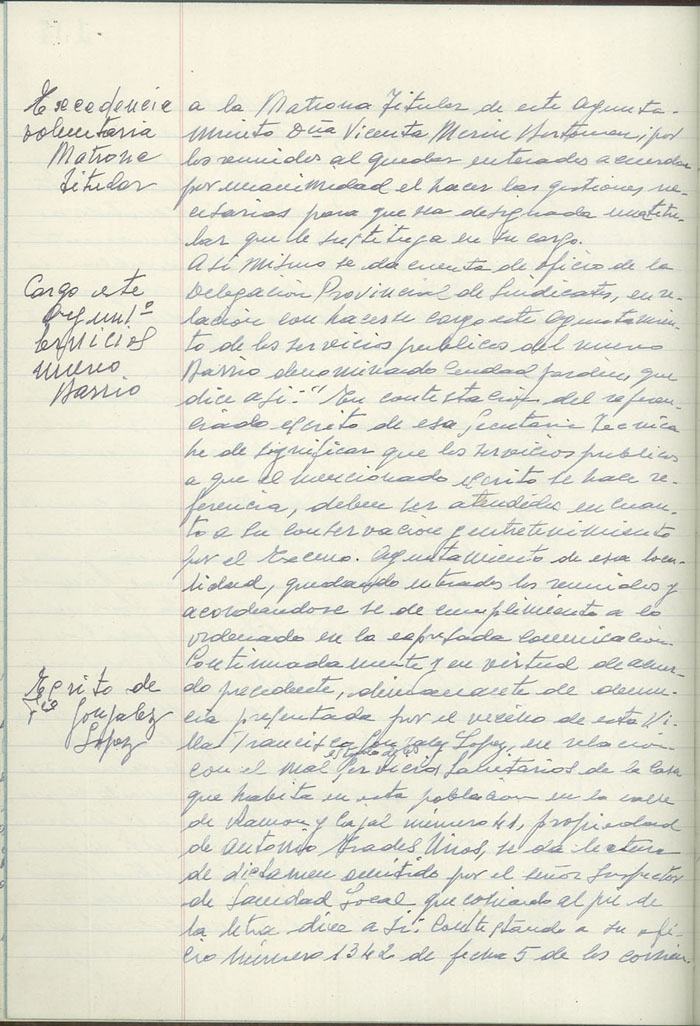 Excedencia
voluntaria
Matrona
titular
a la Matrona Titular de este Ayunta-
miento Dña Vicenta Merin, por
los reunidos al quedar enterados acuerdan
por unanimidad el hacer las gestiones ne-
cesarias para que sea designada una titu-
lar que le sustituya en su cargo.
Cargo este
Ayuntº
servicios
nuevo
Barrio
Asi mismo se da cuenta de oficio de la
Delegación Provincial de Sindicats, en re-
lación con hacerse cargo este Ayuntamien-
to de los servicios publicos del nuevo
Barrio denominado Ciudad Jardin, que
dice asi: "En contestación del referen-
ciado escrito de esa Secretaria Tecnica
he de significar que los servicios publicos
a que el mencionado escrito se hace re-
ferencia, deben ser atendidos en cuan-
to a su conservación y entretenimiento
por el Excmo. Ayuntamiento de esa loca-
lidad, quedando enterados los reunidos y
acordandose se de cumplimiento a lo
ordenado en la expresada comunicación.
Escrito de
Fco
Gonzalez
Lopez
Continuadamente y en virtud de acuer-
do precedente, dimanante de denun-
cia presentada por el vecino de esta Vi-
lla Francisco Gonzalez Lopez, en relación
con el mal estado de los Servicios Sanitarios de la Casa
que habita en esta población en la calle
de Ramon y Cajal numero 41, propiedad
de Antonio, se da lectura
de dictamen emitido por el señor Inspector
de Sanidad Local que copiado al pie de
la letra dice asi: Contestando a su ofi-
cio número 1342 de fecha 5 de los corrien-